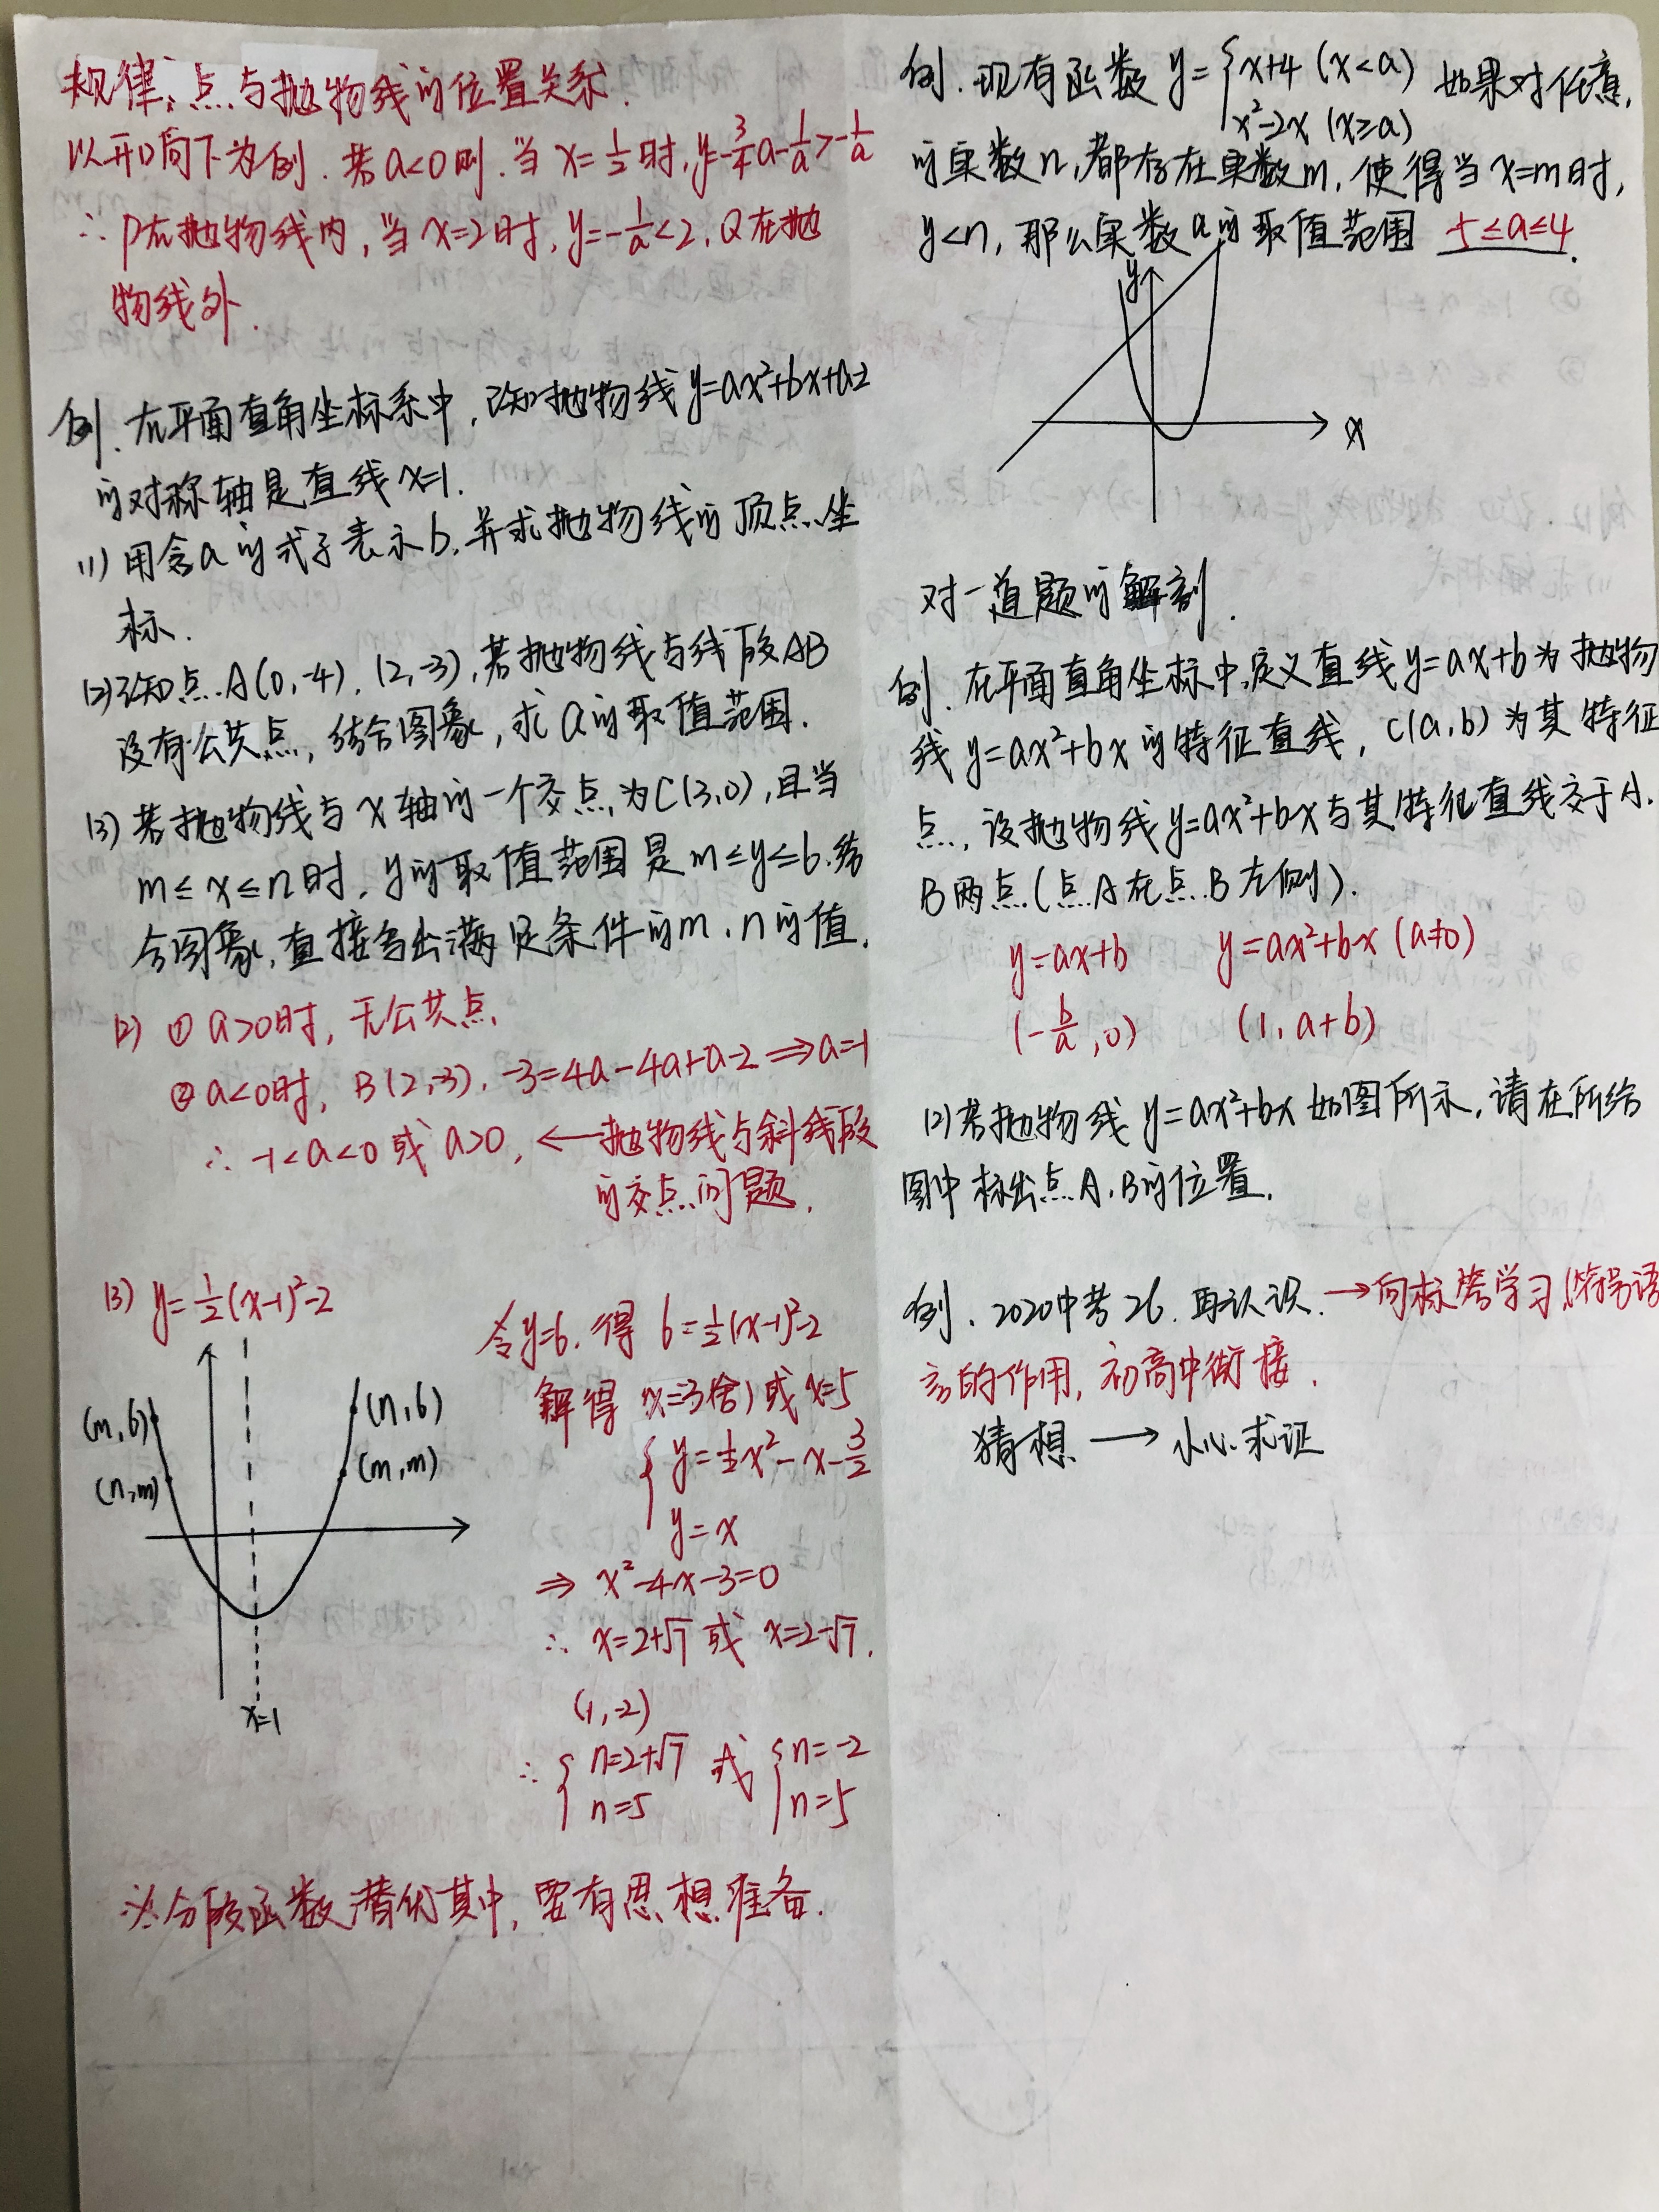 规律:点与抛物线的位置关系.
以开口向下为例.若a<0则.当x=1/2时,y=-3/4a-1/a>-1/a
∴P在抛物线内,当x=2时,y=-1/a<2,Q在抛
物线外.
例.在平面直角坐标系中,已知抛物线y=ax²+bx+a-2
的对称轴是直线x=1.
(1)用含a的式子表示b.并求抛物线的顶点坐
标.
(2)已知点A(0,-4).(2,-3),若抛物线与线段AB
没有公共点,结合图象,求a的取值范围.
(3)若抛物线与x轴的一个交点为C(3,0),且当
m≤x≤n时.y的取值范围是m≤y≤6.结
合图象,直接写出满足条件的m.n的值.
(2) ① a>0时,无公共点.
② a<0时, B(2,-3). -3=4a-4a+a-2⇒a=-1
∴ -1<a<0 或 a>0, ←抛物线与斜线段
的交点问题.
(3) y=1/2(x-1)²-2
(m,6)
(n,6)
(n,m)
(m,m)
x=1
令y=6.得 6=1/2(x-1)²-2
解得 x=-3(舍)或x=5
{y=1/2x²-x-3/2
y=x
⇒ x²-4x-3=0
∴ x=2+√7 或 x=2-√7.
(1,-2)
∴ {n=2+√7 或 {n=-2
n=5 n=5
※分段函数潜伏其中,要有思想准备.
例.现有函数 y={x+4 (x<a) 如果对任意
x²-2x (x≥a)
的实数n,都存在实数m,使得当x=m时,
y<n,那么实数a的取值范围 -5≤a≤4.
y
x
对一道题的解剖.
例.在平面直角坐标中,定义直线y=ax+b为抛物
线y=ax²+bx的特征直线,C(a,b)为其特征
点,设抛物线y=ax²+bx与其特征直线交于A.
B两点(点A在点B左侧).
y=ax+b y=ax²+bx (a≠0)
(-b/a,0) (1,a+b)
(2)若抛物线y=ax²+bx如图所示,请在所给
图中标出点A,B的位置.
例.2020中考26.再认识.→向标答学习(符号语
言的作用,初高中衔接.
猜想→小心求证